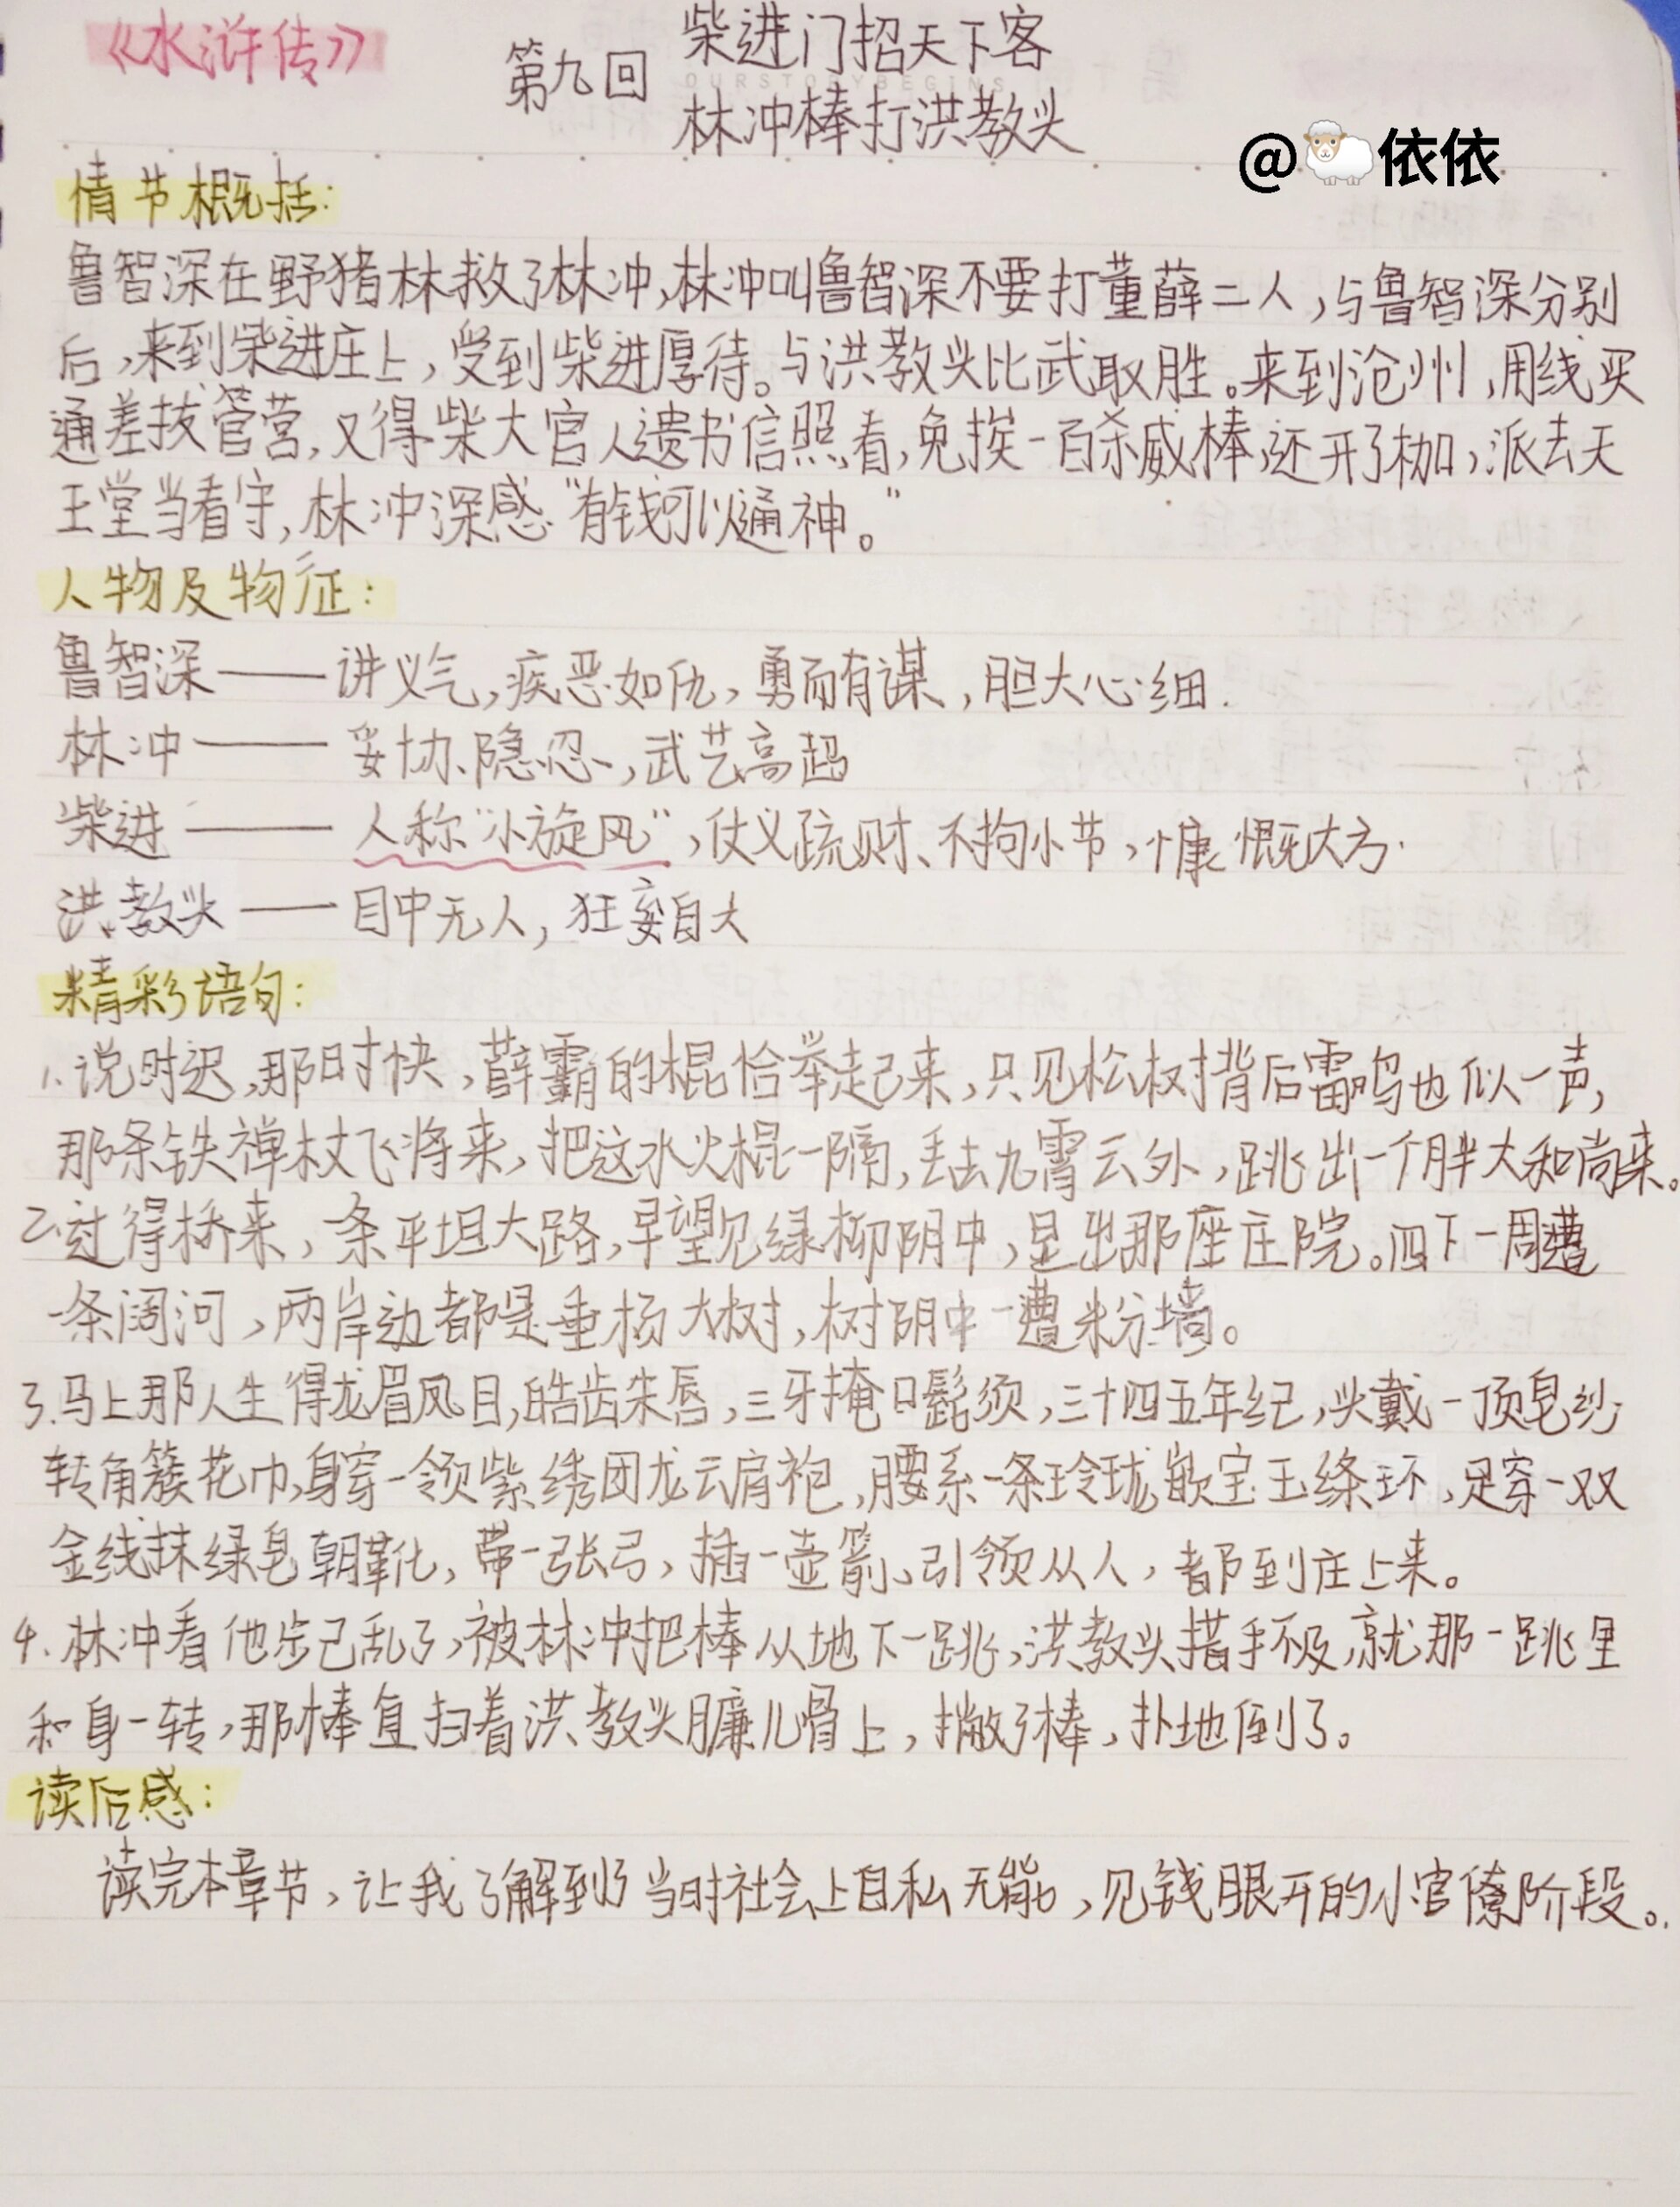 《水浒传》
第九回
柴进门招天下客
林冲棒打洪教头
OURSTORYBEGINS
@依依
情节概括:
鲁智深在野猪林救了林冲,林冲叫鲁智深不要打董薛二人,与鲁智深分别
后,来到柴进庄上,受到柴进厚待。与洪教头比武取胜。来到沧州,用线买
通差拨管营,又得柴大官人遗书信照看,免挨一百杀威棒,还开了枷,派去天
王堂当看守,林冲深感“有钱可以通神。”
人物及物征:
鲁智深——讲义气,疾恶如仇,勇而有谋,胆大心细.
林冲——妥协、隐忍,武艺高超
柴进——人称“小旋风”,仗义疏财、不拘小节,慷慨大方.
洪教头——目中无人,狂妄自大
精彩语句:
1.说时迟,那时快,薛霸的棍恰举起来,只见松树背后雷鸣也似一声,
那条铁禅杖飞将来,把这水火棍一隔,丢去九霄云外,跳出一个胖大和尚来。
2.过得桥来,一条平坦大路,早望见绿柳阴中,显出那座庄院。四下一周遭
一条阔河,两岸边都是垂杨大树,树阴中一遭粉墙。
3.马上那人生得龙眉凤目,皓齿朱唇,三牙掩口髭须,三十四五年纪,头戴一顶皂纱
转角簇花巾,身穿一领紫绣团龙云肩袍,腰系一条玲珑嵌宝玉绦环,足穿一双
金线抹绿皂朝靴,带一张弓,插一壶箭、引领从人,都到庄上来。
4.林冲看他步已乱了,被林冲把棒从地下一跳,洪教头措手不及,就那一跳里
和身一转,那棒直扫着洪教头臁儿骨上,撇了棒,扑地倒了。
读后感:
读完本章节,让我了解到了当时社会上自私无能,见钱眼开的小官僚阶段。